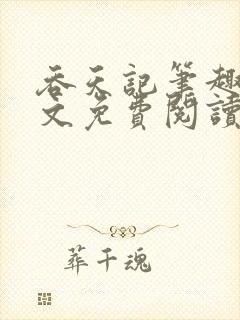 吞天記筆趣
文免費閱讀
葬千魂